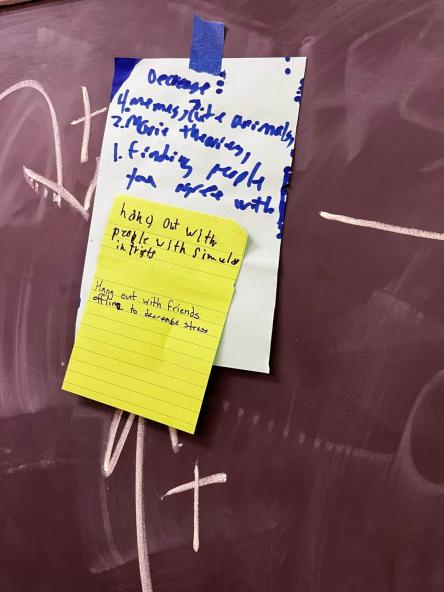 Decrease:
4. memes, cute animals,
2. Movie theories,
1. finding people
you agree with
hang out with
people with simuler
intrists
Hang out with friends
offline to decrease stress